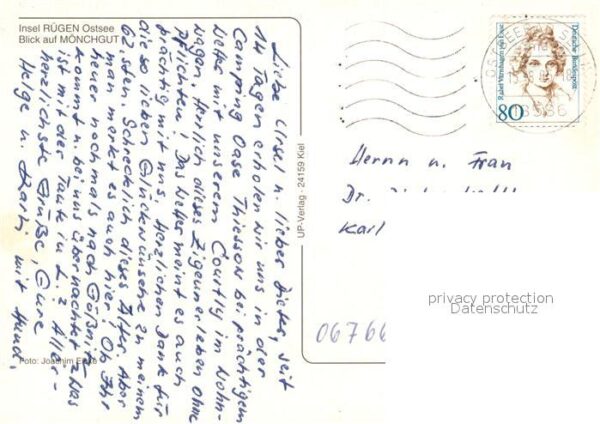 Insel RÜGEN Ostsee
Blick auf MÖNCHGUT
Liebe Ursel u. lieber Dieter, seit
14 Tagen erholen wir uns in der
Camping Oase Thiessow bei prächtigem
Wetter mit unserem Courtly im Wohn-
wagen. Herrlich dieses Zigeunerleben ohne
Pflichten! Das Wetter meint es auch
prächtig mit uns. Herzlichen Dank für
die so lieben Glückwünsche zu meinem
62sten. Schrecklich dieses Alter. Aber
man merkt es auch hier! Ob Ihr
heuer nochmals nach
kommt u. bei uns übernachtet? Was
ist mit der Taufe in L.? Aller-
herzlichste Grüße, Eure
Helga u. mit Hund.
Foto: Joachim
UP-Verlag · 24159 Kiel
Rahel Varnhagen von Ense
Deutsche Bundespost
80
18586
Herrn u. Frau
Dr.
Karl
06766
privacy protection
Datenschutz